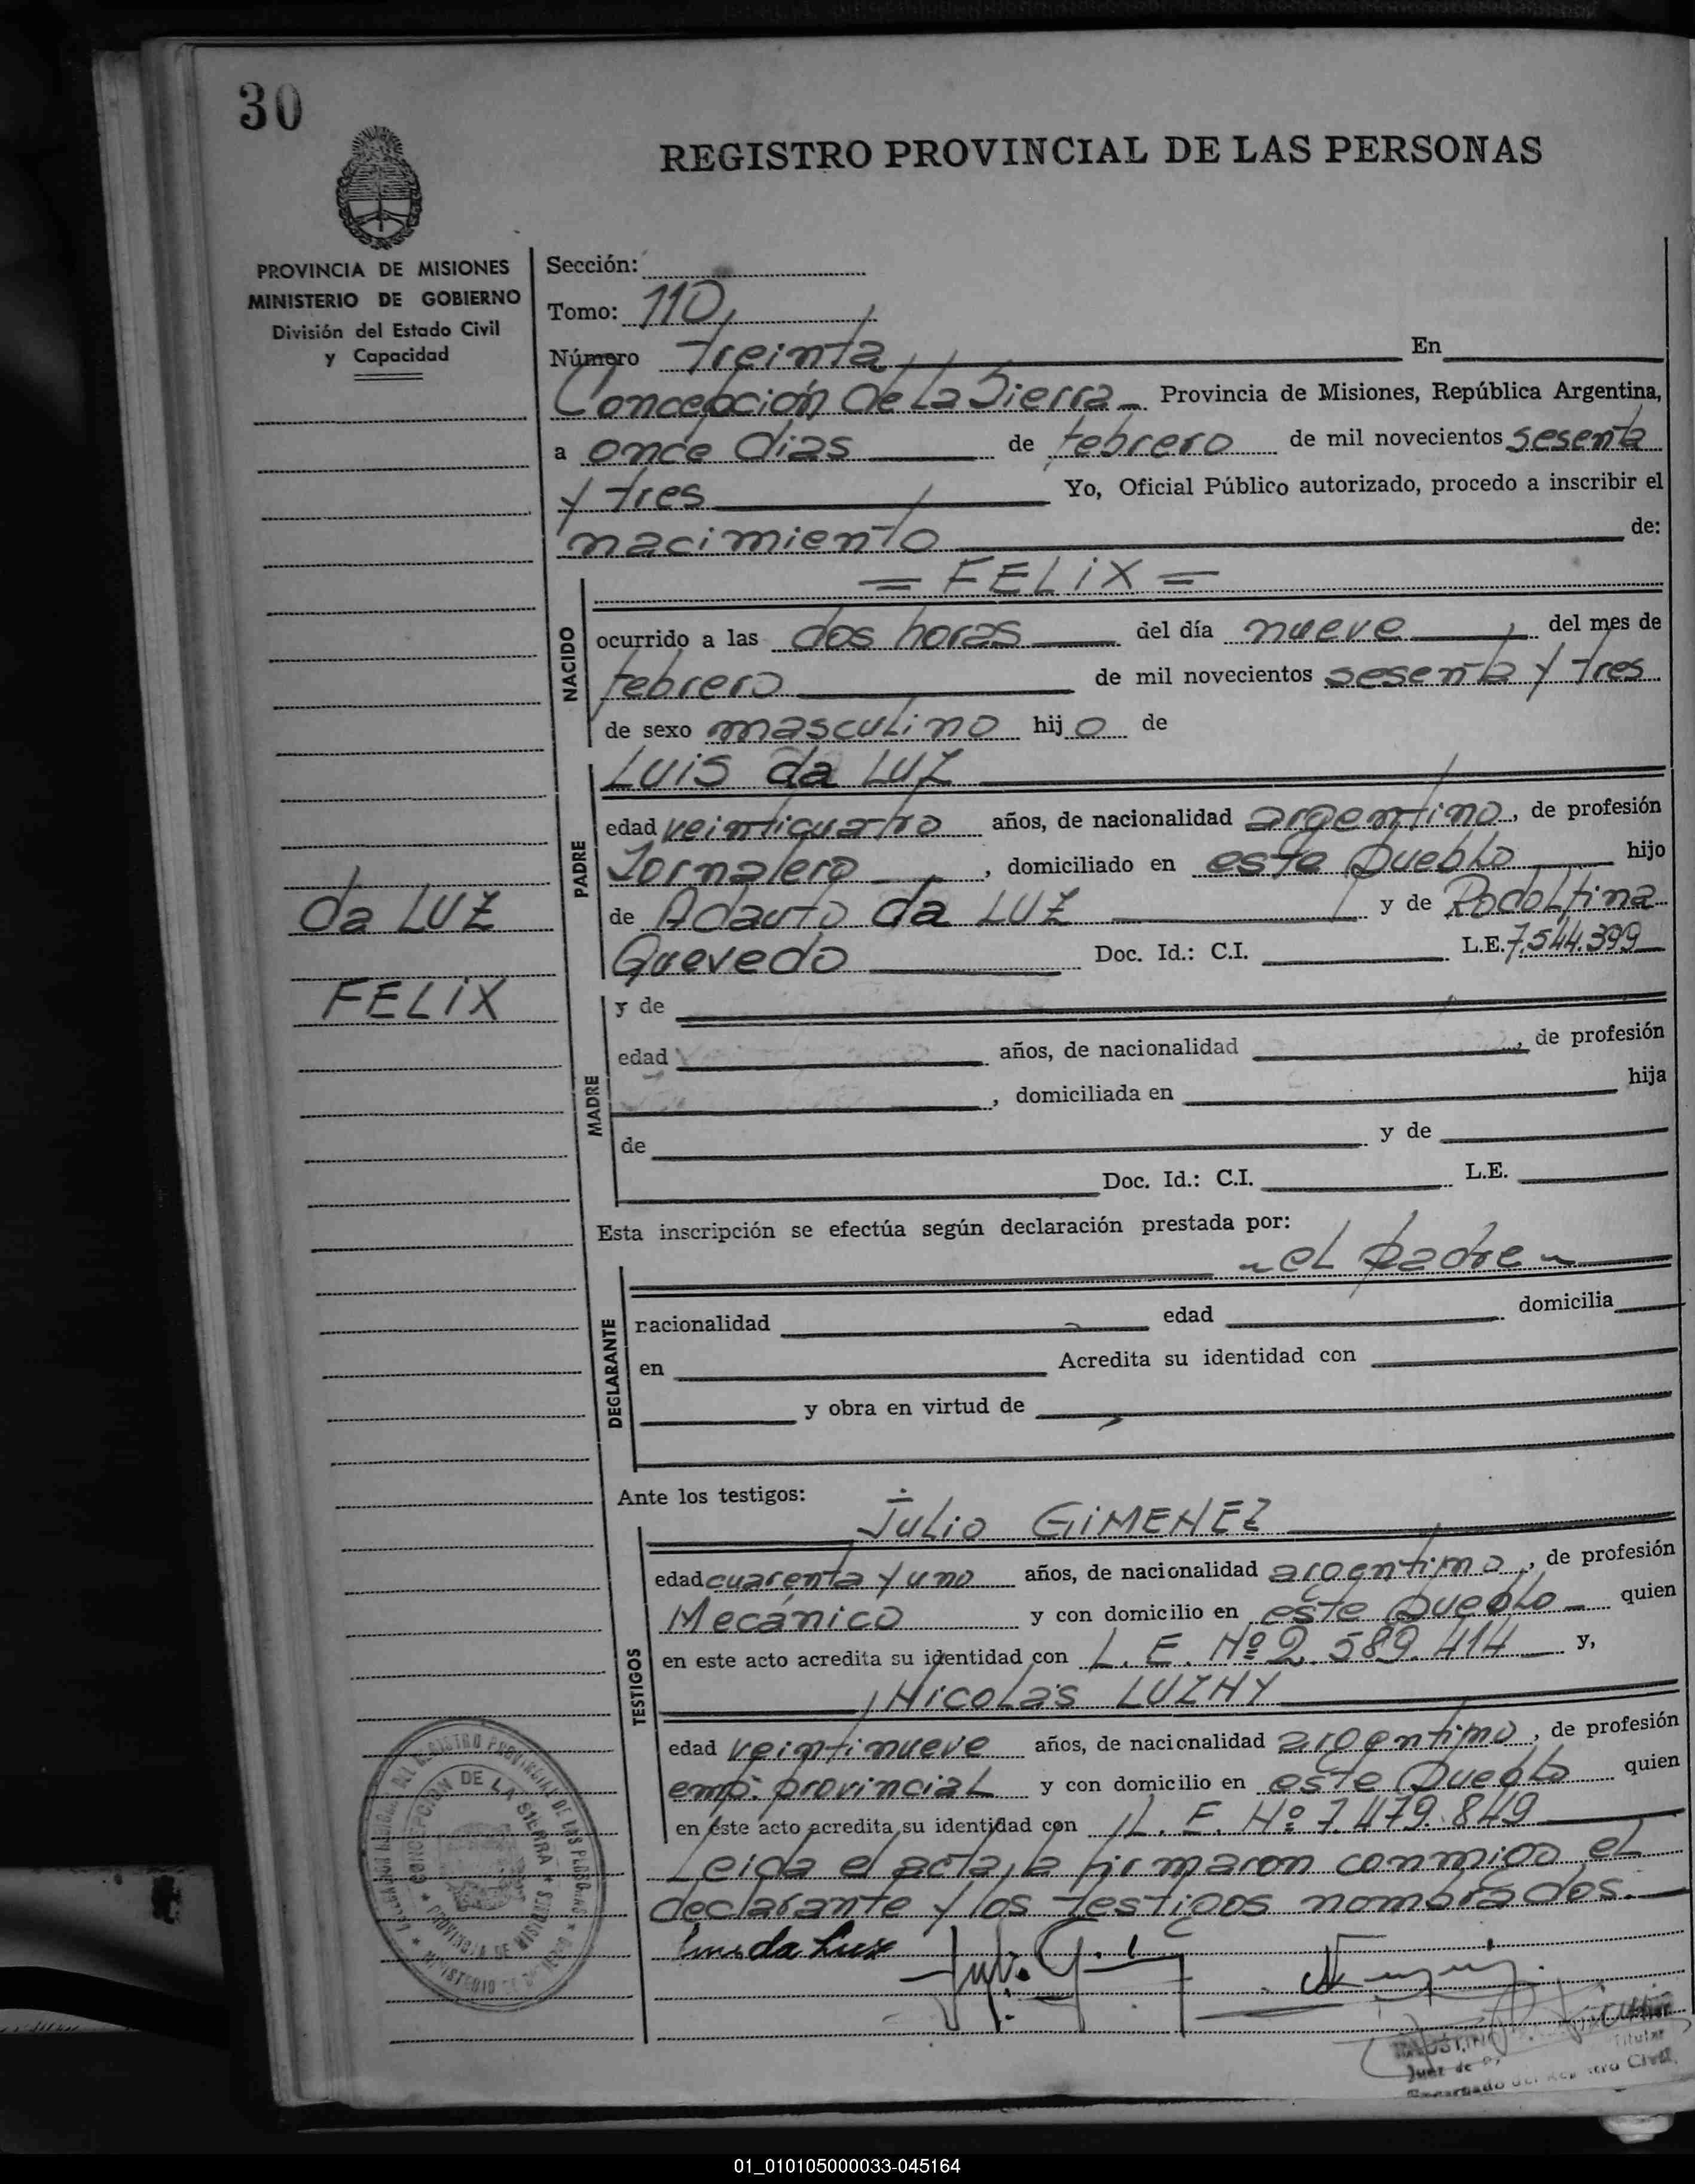 30
REGISTRO PROVINCIAL DE LAS PERSONAS
PROVINCIA DE MISIONES
MINISTERIO DE GOBIERNO
División del Estado Civil
y Capacidad
Sección:
Tomo: 110
Número treinta En
Concepción de La Sierra Provincia de Misiones, República Argentina,
a once días de febrero de mil novecientos sesenta
y tres Yo, Oficial Público autorizado, procedo a inscribir el
nacimiento de:
= FELiX =
NACIDO
ocurrido a las dos horas del día nueve del mes de
febrero de mil novecientos sesenta y tres
de sexo masculino hijo de
PADRE
Luis da LUZ
edad veinticuatro años, de nacionalidad argentino, de profesión
Jornalero, domiciliado en este pueblo hijo
de Adauto da LUZ y de Rodolfina
Quevedo Doc. Id.: C.I. L.E. 7.544.399
da LUZ
FELiX
MADRE
y de
edad años, de nacionalidad , de profesión
, domiciliada en hija
de y de
Doc. Id.: C.I. L.E.
Esta inscripción se efectúa según declaración prestada por:
el padre
DECLARANTE
nacionalidad edad domicilia
en Acredita su identidad con
y obra en virtud de
Ante los testigos:
Julio GiMENEZ
TESTIGOS
edad cuarenta y uno años, de nacionalidad argentino, de profesión
Mecánico y con domicilio en este pueblo quien
en este acto acredita su identidad con L. E. Nº 2.589.414 y,
Nicolás LUZNY
edad veintinueve años, de nacionalidad argentino, de profesión
emp. provincial y con domicilio en este pueblo quien
en este acto acredita su identidad con L. E. Nº 7.479.849
Leida el acta, la firmaron conmigo el
declarante y los testigos nombrados.
Luis da Luz
CONCEPCION DE LA SIERRA
PROVINCIA DE MISIONES
REGISTRO PROVINCIAL DE LAS PERSONAS
MINISTERIO DE GOBIERNO
Titular
Juez de
Encargado del Registro Civil
01_010105000033-045164